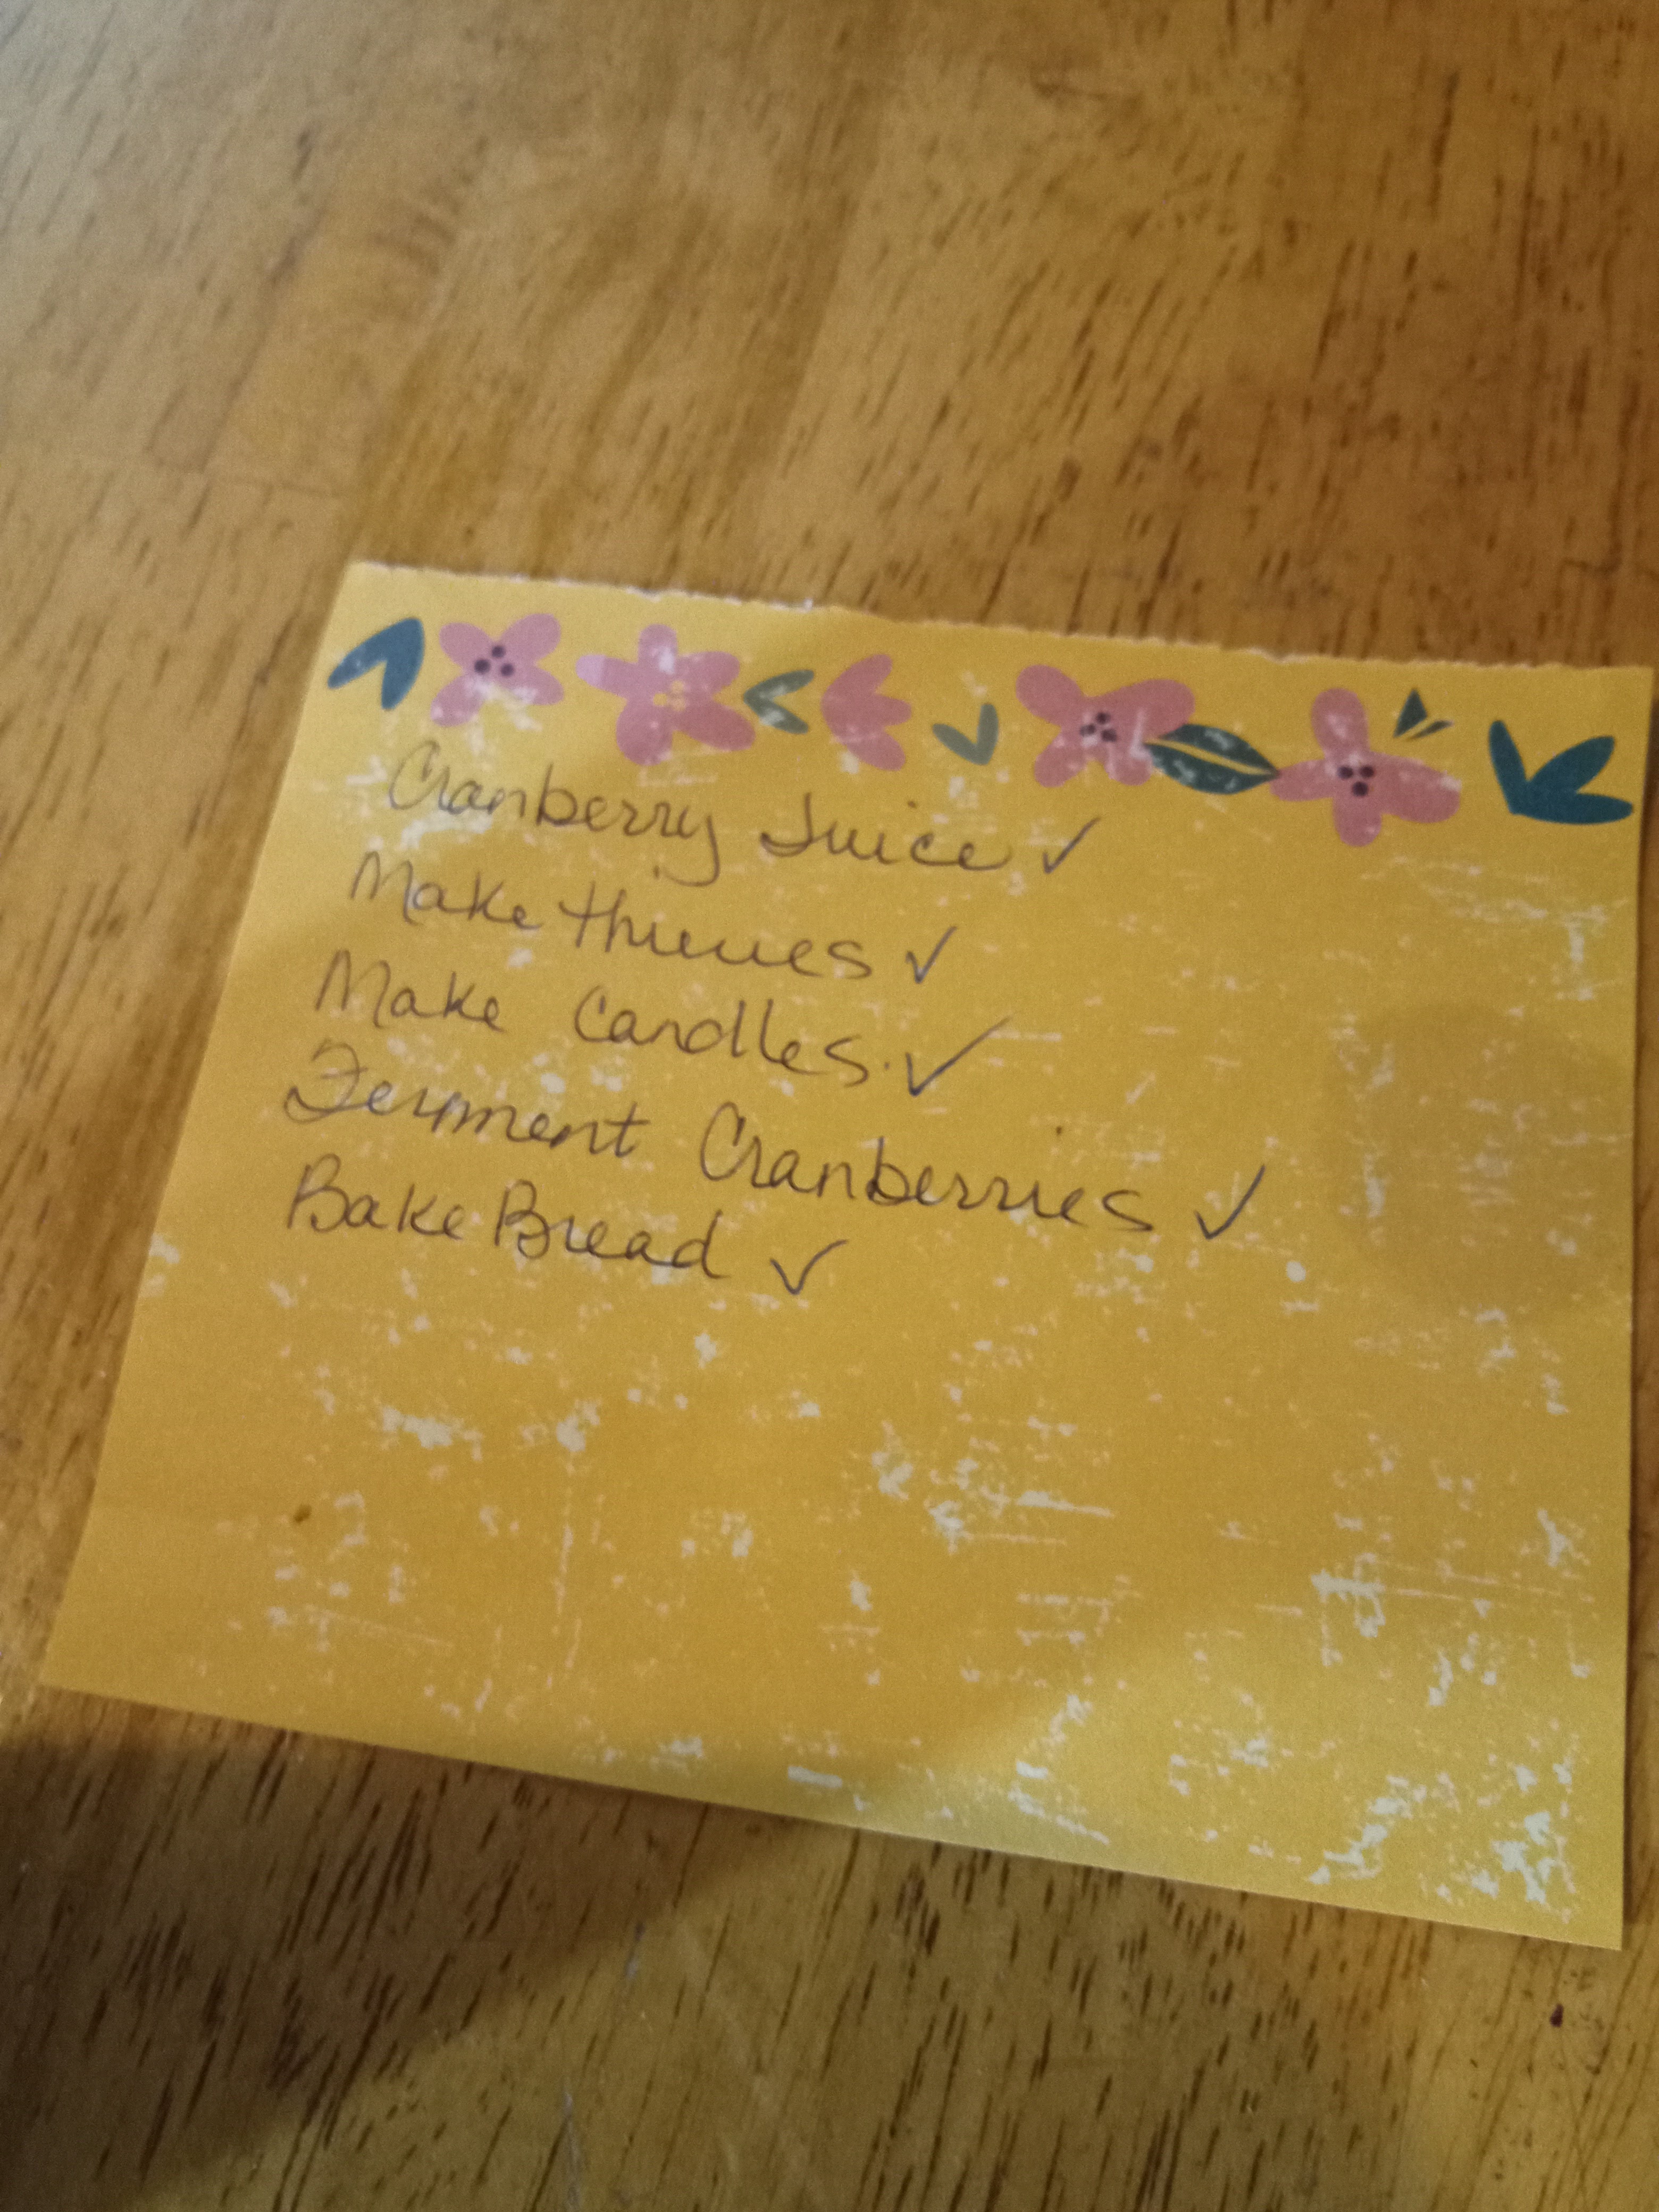 Cranberry Juice ✓
Make thieves ✓
Make Candles. ✓
Ferment Cranberries ✓
Bake Bread ✓